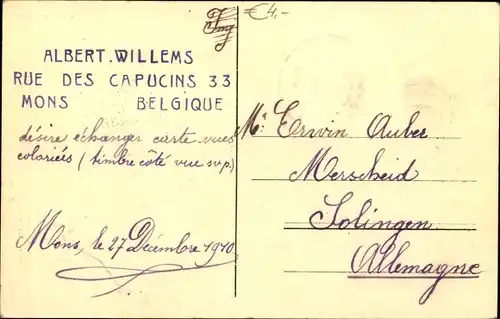 €4,-
ALBERT.WILLEMS
RUE DES CAPUCINS 33
MONS BELGIQUE
désire échanger carte-vues
coloriés (timbre côté vue svp.)
Mons, le 27 Décembre 1910
Mr. Erwin Auber
Merscheid
Solingen
Allemagne